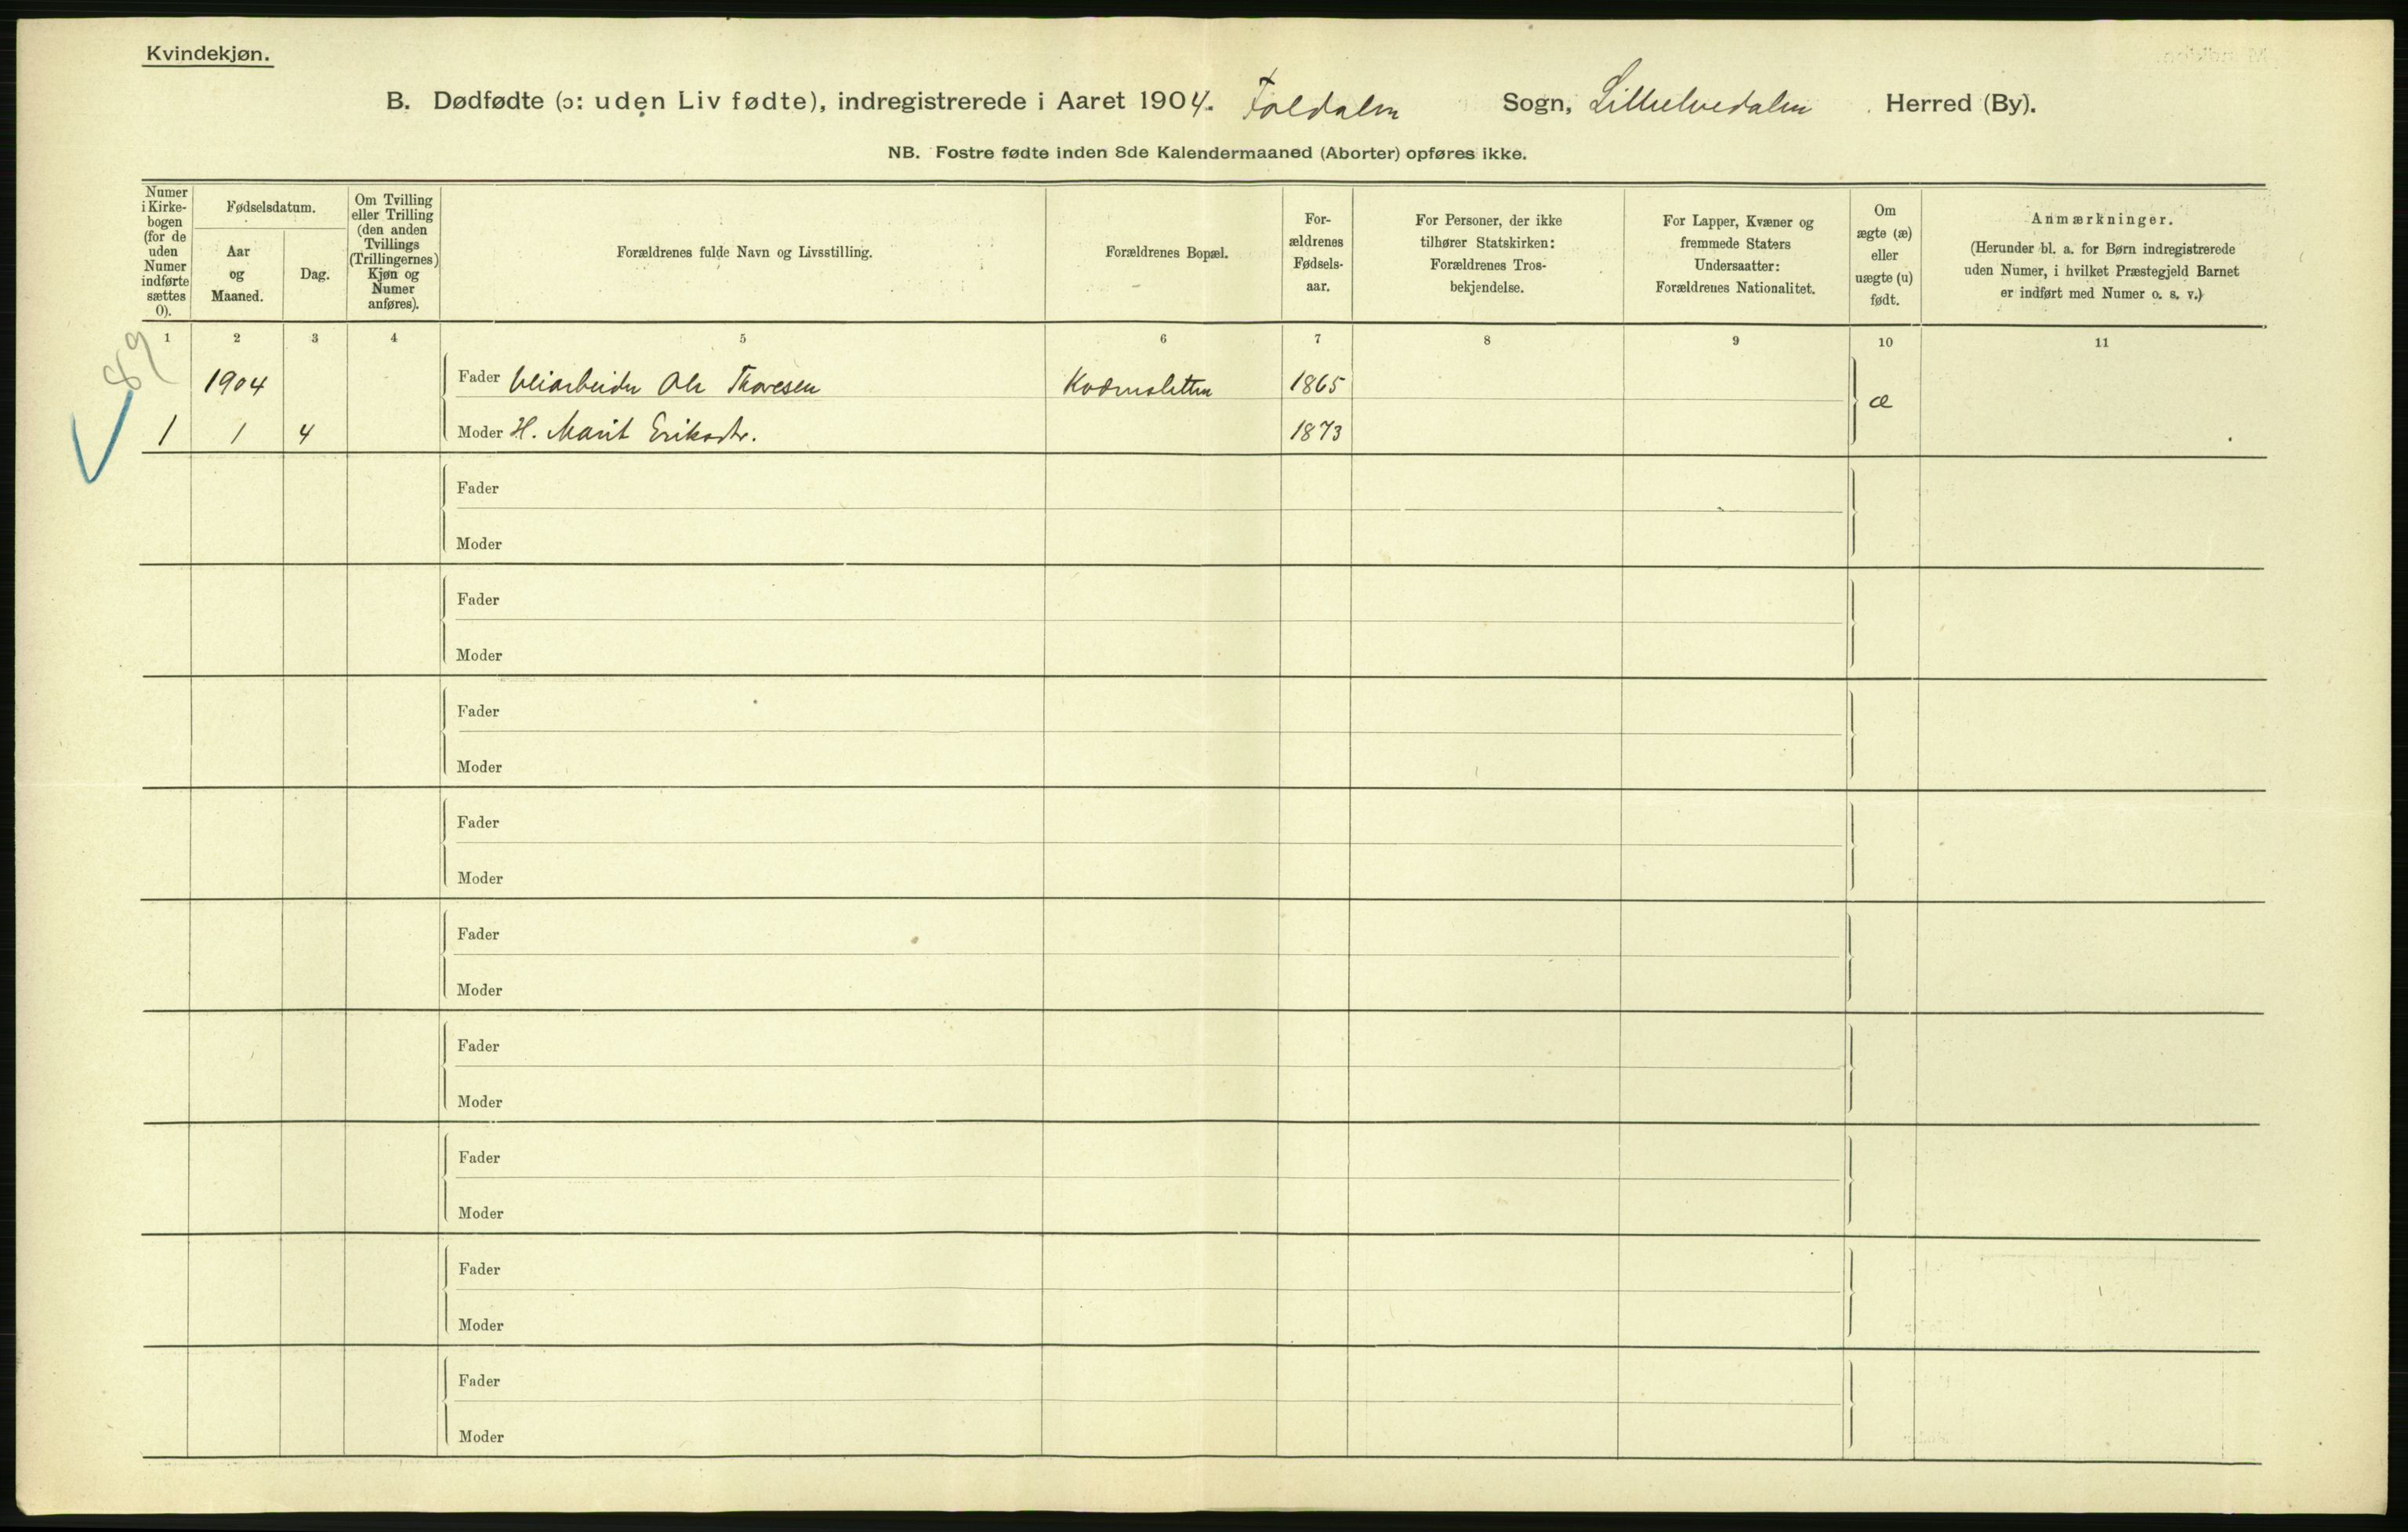 Kvindekjøn.
B. Dødfødte (ɔ: uden Liv fødte), indregistrerede i Aaret 1904. Foldalen Sogn, Lilleelvedalen Herred (By).
NB. Fostre fødte inden 8de Kalendermaaned (Aborter) opføres ikke.
Numer i Kirke-bogen (for de uden Numer indførte sættes 0).
Fødselsdatum.
Aar og Maaned.
Dag.
Om Tvilling eller Trilling (den anden Tvillings (Trillingernes) Kjøn og Numer anføres).
Forældrenes fulde Navn og Livsstilling.
Forældrenes Bopæl.
For-ældrenes Fødsels-aar.
For Personer, der ikke tilhører Statskirken: Forældrenes Tros-bekjendelse.
For Lapper, Kvæner og fremmede Staters Undersaatter: Forældrenes Nationalitet.
Om ægte (æ) eller uægte (u) født.
Anmærkninger.
(Herunder bl. a. for Børn indregistrerede uden Numer, i hvilket Præstegjeld Barnet er indført med Numer o. s. v.)
1 2 3 4 5 6 7 8 9 10 11
89
1904 Fader Veiarbeider Ole Thoresen 1865 æ
1 1 4 Moder H. Marit Eriksdtr. 1873
Fader
Moder
Fader
Moder
Fader
Moder
Fader
Moder
Fader
Moder
Fader
Moder
Fader
Moder
Fader
Moder
Fader
Moder